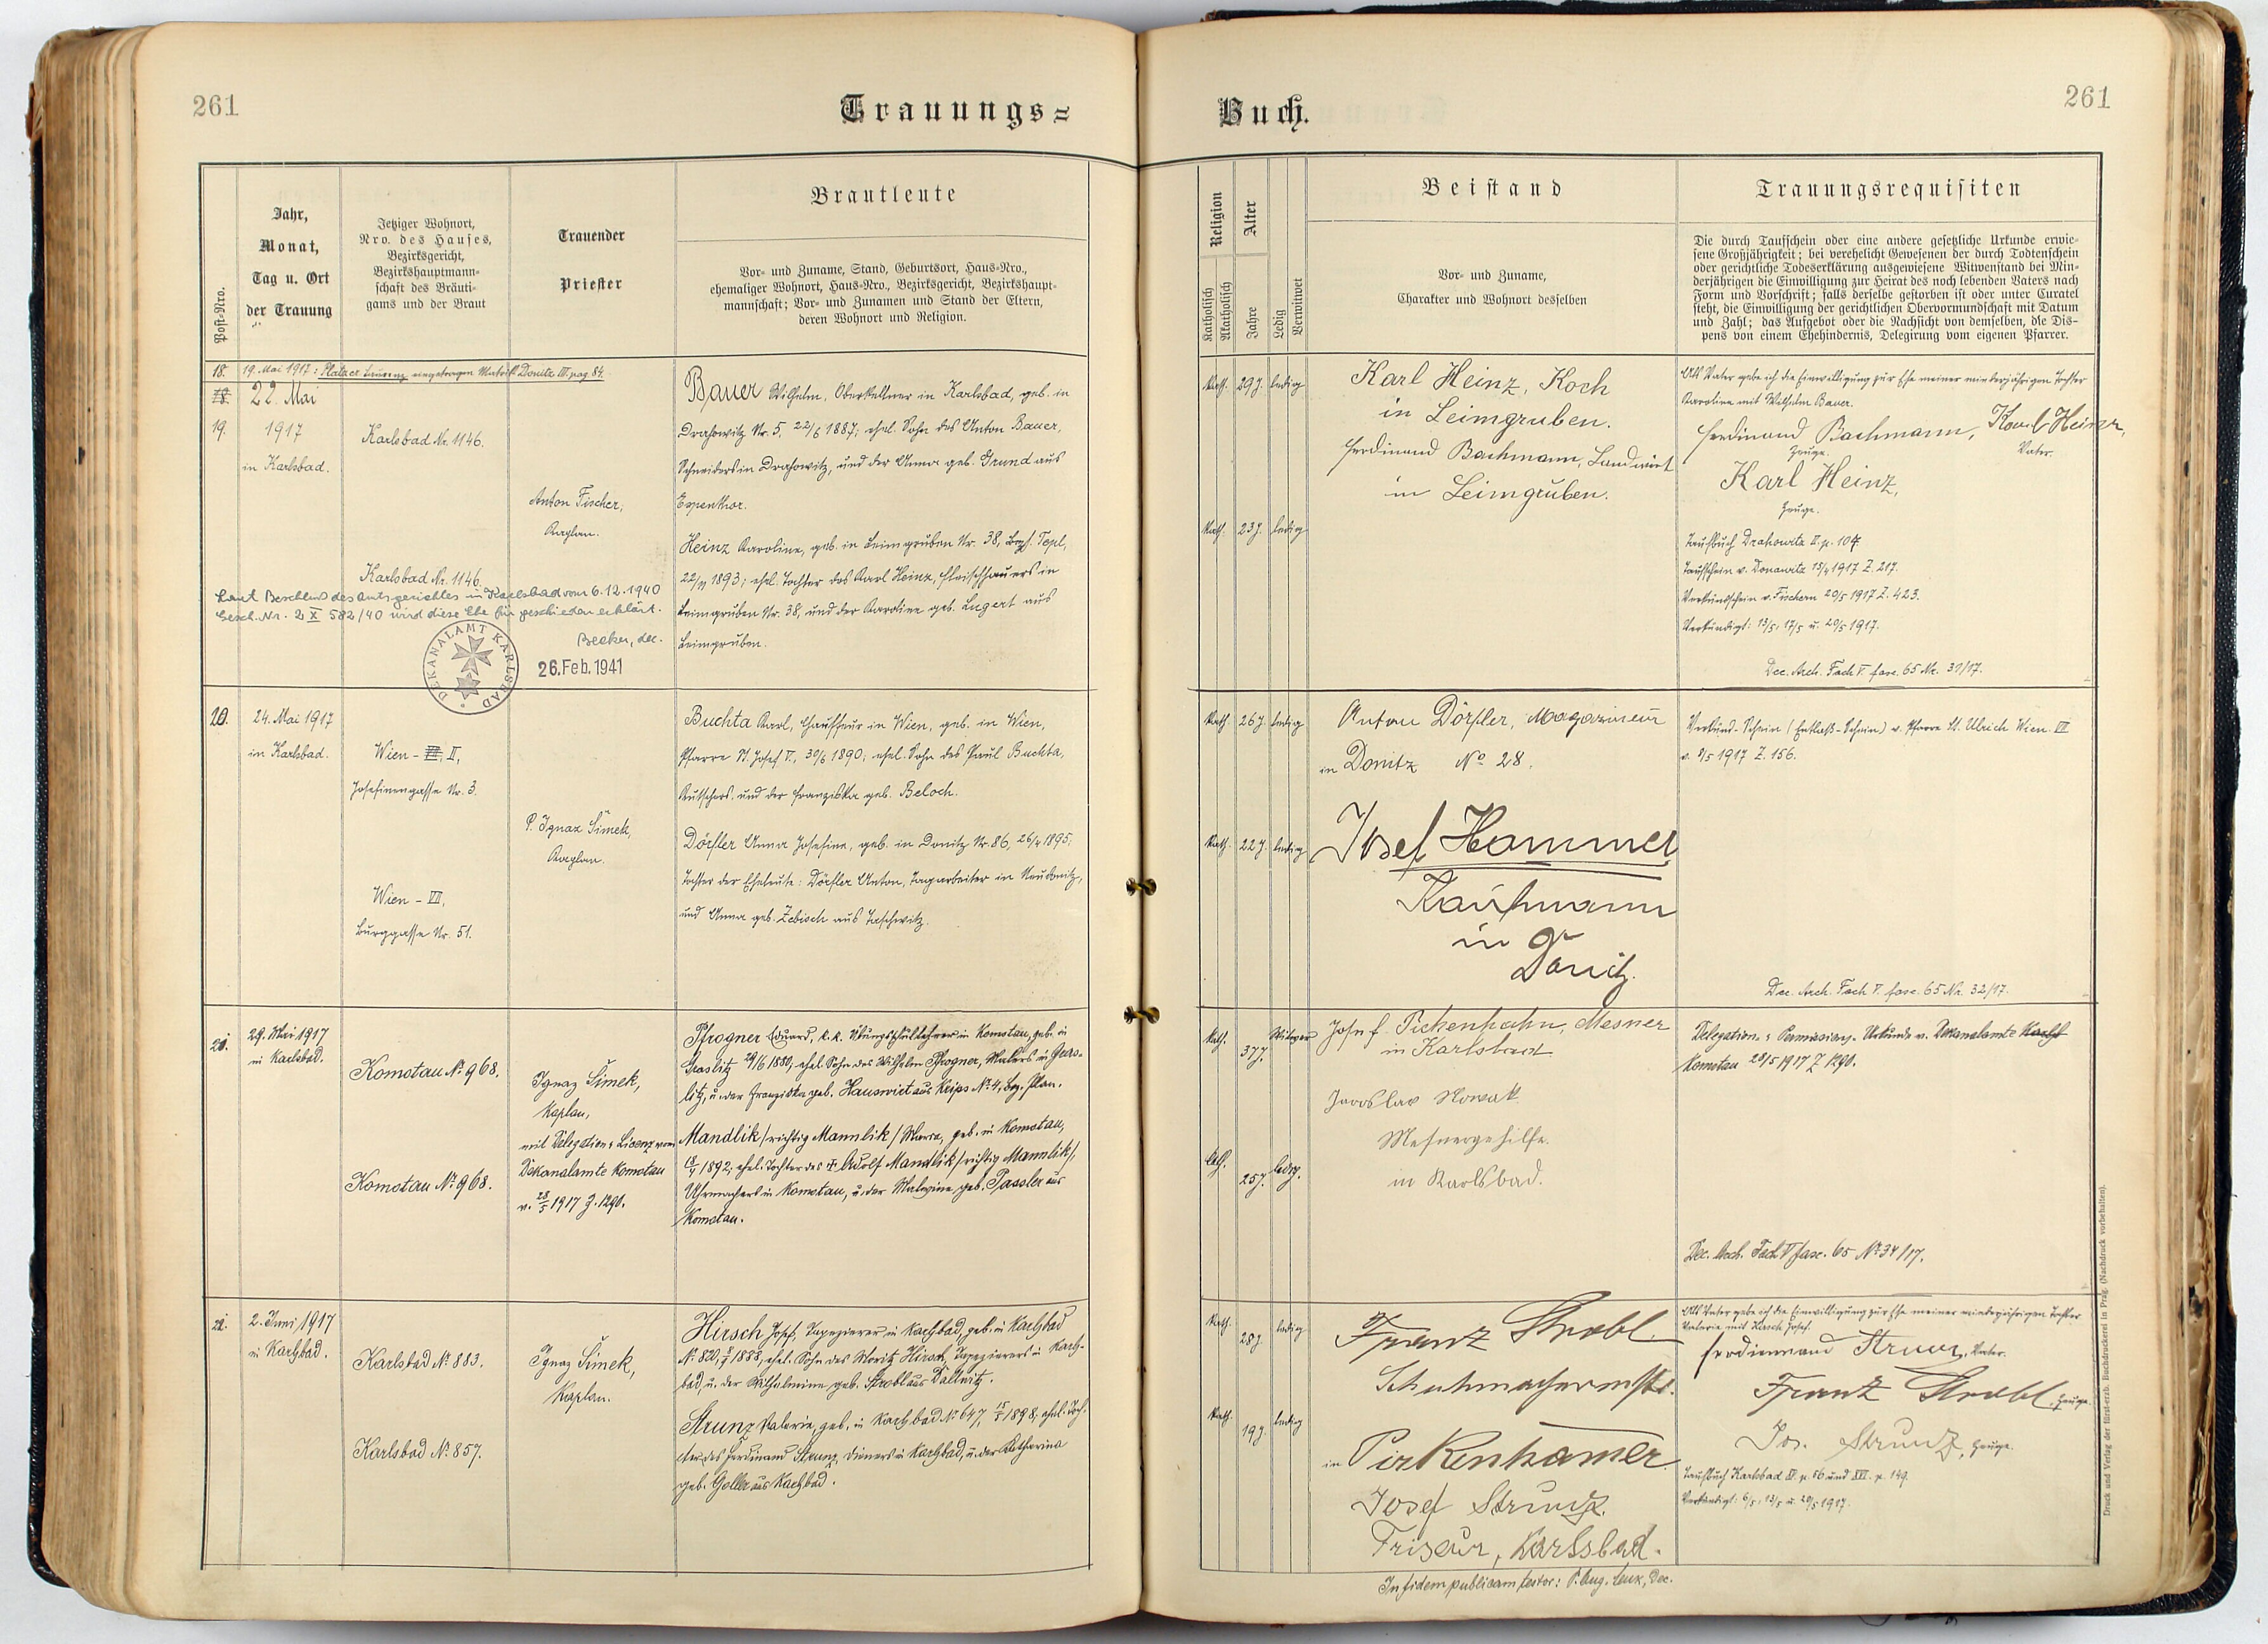 261
Trauungs=
Post-Nro.
Jahr,
Monat,
Tag u. Ort
der Trauung
Jetziger Wohnort,
Nro. des Hauses,
Bezirksgericht,
Bezirkshauptmann-
schaft des Bräuti-
gams und der Braut
Trauender
Priester
Brautleute
Vor- und Zuname, Stand, Geburtsort, Haus-Nro.,
ehemaliger Wohnort, Haus-Nro., Bezirksgericht, Bezirkshaupt-
mannschaft; Vor- und Zunamen und Stand der Eltern,
deren Wohnort und Religion.
18. 19. Mai 1917: Platzer eingetragen Matrik Donitz III. pag. 84.
18.
19.
22. Mai
1917
in Karlsbad.
Karlsbad Nr. 1146.
Karlsbad Nr. 1146.
Anton Fischer,
Kaplan.
Bauer Wilhelm, Oberkellner in Karlsbad, geb. in
Drahowitz Nr. 5, 22/6 1887; ehel. Sohn des Anton Bauer,
Schneiders in Drahowitz, und der Anna geb. Grund aus
Espenthor.
Heinz Karoline, geb. in Leimgruben Nr. 38, Bezh. Tepl,
1893; ehel. Tochter des Karl Heinz, Fleischhauers in
Leimgruben Nr. 38, und der Karoline geb. Lugert aus
Leimgruben.
Laut Beschluss des Amtsgerichtes in Karlsbad vom 6.12.1940
Gesch. Nr. 2 X 582/40 wird diese Ehe für geschieden erklärt.
Becker, dec.
DEKANALAMT KARLSBAD
26. Feb. 1941
20.
24. Mai 1917
in Karlsbad.
Wien - II,
Josefinengasse Nr. 3.
Wien - VII,
Burggasse Nr. 51.
P. Ignaz Šimek,
Kaplan.
Buchta Karl, Chauffeur in Wien, geb. in Wien,
Pfarre St. Josef V., 30/6 1890; ehel. Sohn des Paul Buchta,
Kutschers, und der Franziska geb. Beloch.
Dörfler Anna Josefine, geb. in Donitz Nr. 86, 1895;
Tochter der Eheleute: Dörfler Anton, Tagarbeiter in Neudonitz,
und Anna geb. Zebisch aus Taschwitz.
21.
29. Mai 1917
in Karlsbad.
Komotau No 968.
Komotau No 968.
Ignaz Šimek,
Kaplan,
mit Delegations Lizenz vom
Dekanalamte Komotau
v. 28/5 1917 Z. 1290.
Pfrogner Eduard, k. k. Übungsschullehrer in Komotau, geb. in
Graslitz 29/6 1880, ehel. Sohn des Wilhelm Pfrogner, Malers in Gras-
litz, u. der Franziska geb. Hauswirt aus Keips No 4, Bez. Plan.
Mandlik /richtig Mannlik/ Maria, geb. in Komotau,
1892, ehel. Tochter des † Adolf Mandlik /richtig Mannlik/,
Uhrmachers in Komotau, u. der Malwine geb. Passler aus
Komotau.
22.
2. Juni 1917
in Karlsbad.
Karlsbad No 883.
Karlsbad No 857.
Ignaz Šimek,
Kaplan.
Hirsch Josef, Tapezierer in Karlsbad, geb. in Karlsbad
No 820, 1888, ehel. Sohn des Moritz Hirsch, Tapezierers in Karls-
bad, u. der Wilhelmine geb. Strobl aus Dallwitz.
Strunz Valerie, geb. in Karlsbad No 647, 1898, ehel. Toch-
ter des Ferdinand Strunz, Dieners in Karlsbad, u. der Katharina
geb. Goller aus Karlsbad.
Buch.
261
Religion
Katholisch
Akatholisch
Alter
Jahre
Ledig
Verwitwet
Beistand
Vor- und Zuname,
Charakter und Wohnort desselben
Trauungsrequisiten
Die durch Taufschein oder eine andere gesetzliche Urkunde erwie-
sene Großjährigkeit; bei verehelicht Gewesenen der durch Todtenschein
oder gerichtliche Todeserklärung ausgewiesene Witwenstand bei Min-
derjährigen die Einwilligung zur Heirat des noch lebenden Vaters nach
Form und Vorschrift; falls derselbe gestorben ist oder unter Curatel
steht, die Einwilligung der gerichtlichen Obervormundschaft mit Datum
und Zahl; das Aufgebot oder die Nachsicht von demselben, die Dis-
pens von einem Ehehindernis, Delegirung vom eigenen Pfarrer.
Kath. 29J. ledig
Kath. 23J. ledig
Karl Heinz, Koch
in Leimgruben.
Ferdinand Bachmann, Landwirt
in Leimgruben.
Als Vater gebe ich die Einwilligung zur Ehe meiner minderjährigen Tochter
Karoline mit Wilhelm Bauer.
Ferdinand Bachmann, Karl Heinz,
Zeuge. Vater.
Karl Heinz,
Zeuge.
Taufbuch Drahowitz II. p. 104.
Taufschein v. Donawitz 15/4 1917 Z. 217.
Verkündschein v. Fischern 20/5 1917 Z. 423.
Verkündigt: 13/5, 17/5 u. 20/5 1917.
Dec. Arch. Fach V. fasc. 65 Nr. 31/17.
Kath. 26J. ledig
Kath. 22J. ledig
Anton Dörfler, Magazineur
in Donitz No 28.
Josef Hammer
Kaufmann
in
Donitz.
Verkünd-Schein (Entlaß-Schein) v. Pfarre St. Ulrich Wien VII
1917 Z. 156.
Dec. Arch. Fach V. fasc. 65 Nr. 32/17.
Kath. 37J. Witwer
Kath. 25J. ledig.
Josef Pickenhahn, Mesner
in Karlsbad
Jaroslav Nowak
Mesnergehilfe.
in Karlsbad.
Delegations- Permissions- Urkunde v. Dekanalamte
Komotau 28/5 1917 Z 1290.
Dec. Arch. Fach V fasc. 65 No 34/17.
Kath. 28J. ledig
Kath. 19J. ledig
Franz Strobl
Schuhmachermstr.
in Pirkenhamer
Josef Strunz.
Friseur, Karlsbad.
Als Vater gebe ich die Einwilligung zur Ehe meiner minderjährigen Tochter
Valerie mit Hirsch Josef.
Ferdinand Strunz, Vater.
Franz Strobl, Zeuge.
Jos. Strunz, Zeuge.
Taufbuch Karlsbad XV. p. 56 und XVI. p. 149.
Verkündigt: 6/5, 13/5 u. 20/5 1917.
In fidem publicam testor: P. Aug. Lenz, Dec.
Druck und Verlag der fürst-erzb. Buchdruckerei in Prag. (Nachdruck vorbehalten).